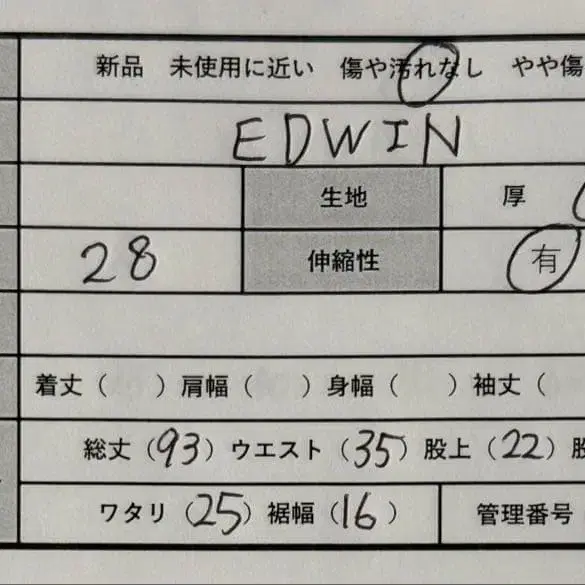 新品 未使用に近い 傷や汚れなし やや傷
EDWIN
生地 厚
28 伸縮性 有
着丈（ ）肩幅（ ）身幅（ ）袖丈（
総丈（93）ウエスト（35）股上（22）股
ワタリ（25）裾幅（16）管理番号